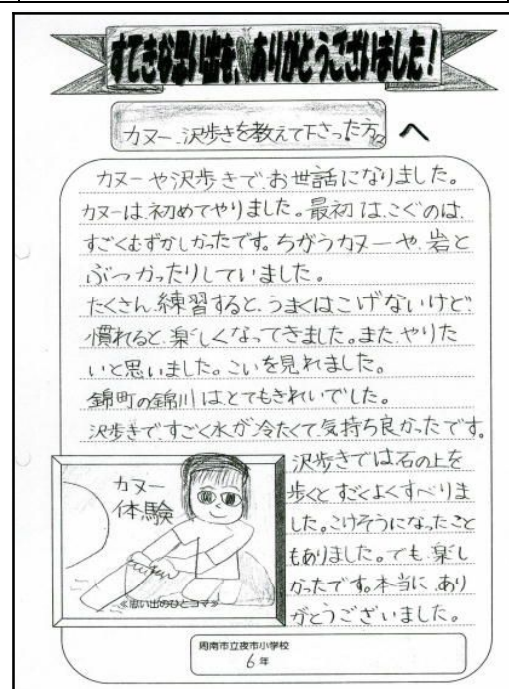 すてきな思い出を、ありがとうございました!
カヌー、沢歩きを教えて下さった方々 へ
カヌーや沢歩きで、お世話になりました。
カヌーは、初めてやりました。最初は、こぐのは、
すごくむずかしかったです。ちがうカヌーや、岩と
ぶつかったりしていました。
たくさん、練習すると、うまくはこげないけど、
慣れると、楽しくなってきました。また、やりた
いと思いました。こいを見れました。
錦町の錦川は、とてもきれいでした。
沢歩きで、すごく水が冷たくて、気持ち良かったです。
沢歩きでは石の上を
歩くと、すごくよくすべりま
した。こけそうになったこと
もありました。でも、楽し
かったです。本当に、あり
がとうございました。
カヌー
体験
≪思い出のひとコマ≫
周南市立夜市小学校
6年